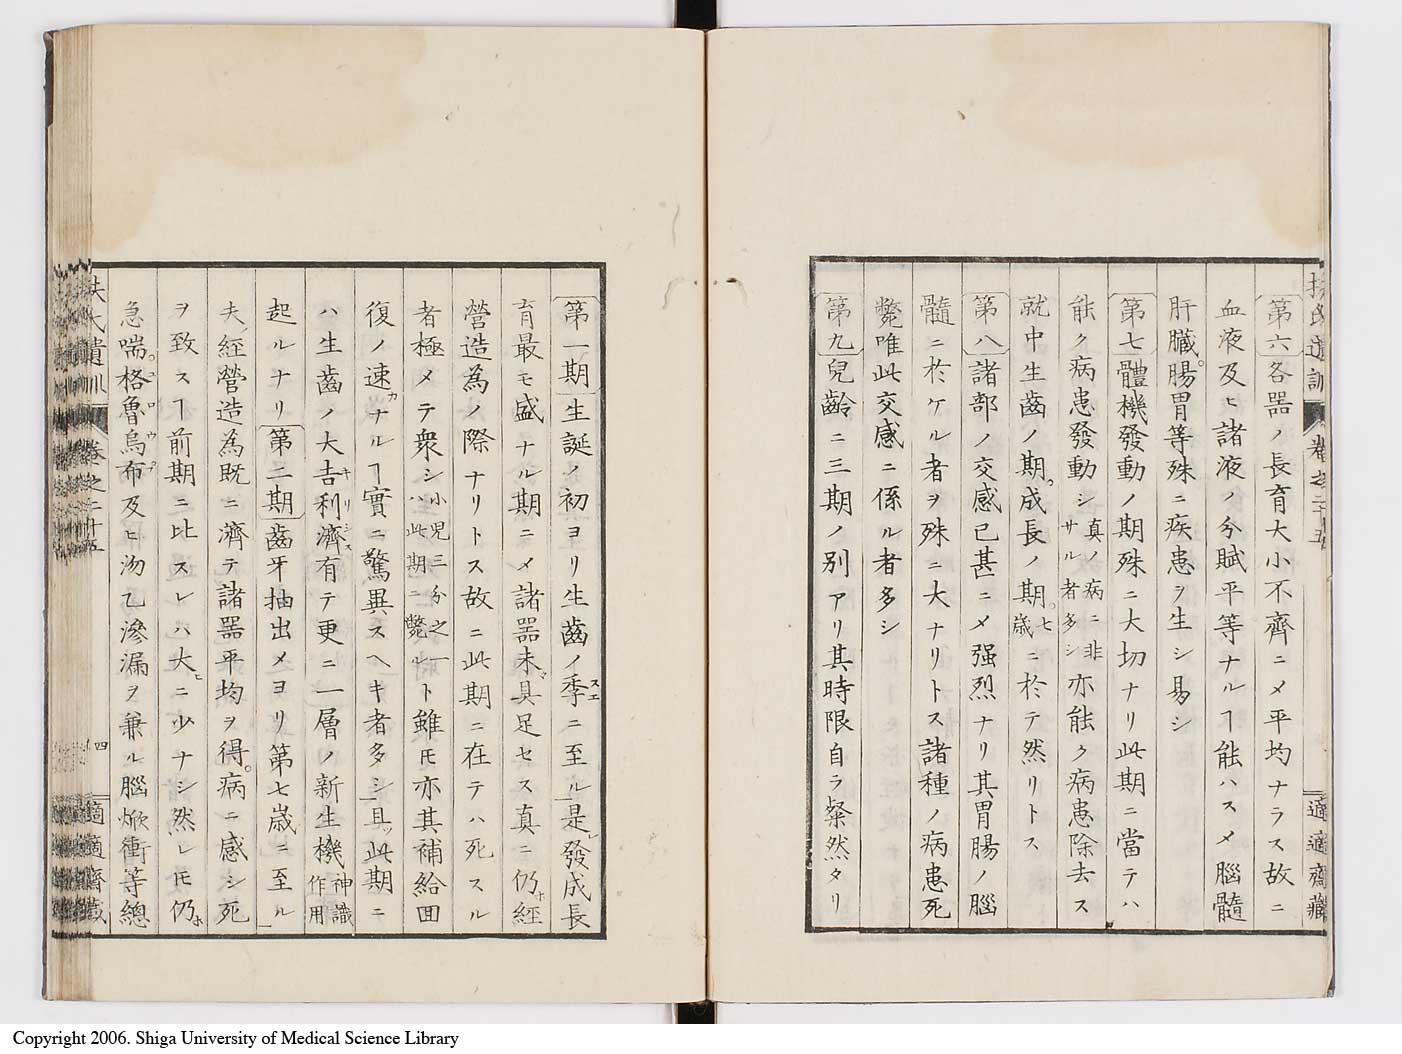 第六各器ノ長育大小不齊ニ〆平均ナラス故ニ
血液及ヒ諸液ノ分賦平等ナルヿ能ハス〆腦髓
肝臟。腸胃等殊ニ疾患ヲ生シ易シ
第七體機發動ノ期殊ニ大切ナリ此期ニ當テハ
能ク病患發動シ真ノ病ニ非サル者多シ亦能ク病患除去ス
就中生齒ノ期。成長ノ期。七歳ニ於テ然リトス
第八諸部ノ交感已甚ニ〆强烈ナリ其胃腸ノ腦
髓ニ於ケル者ヲ殊ニ大ナリトス諸種ノ病患死
斃唯此交感ニ係ル者多シ
第九兒齡ニ三期ノ別アリ其時限自ラ粲然タリ
扶氏遺訓 卷之二十五 適適齋藏
第一期生誕ノ初ヨリ生齒ノ季スエニ至ル是レ發成長
育最モ盛ナル期ニ〆諸器未タ具足セス真ニ仍ホ經
營造為ノ際ナリトス故ニ此期ニ在テハ死スル
者極メテ衆シ小兒三分之一ハ此期ニ斃ルト雖モ亦其補給回
復ノ速カナルヿ實ニ驚異スヘキ者多シ且ツ此期ニ
ハ生齒ノ大吉利濟キリシス有テ更ニ一層ノ新生機神識作用
起ルナリ第二期齒牙抽出〆ヨリ第七歳ニ至ル
夫經營造為既ニ濟テ諸器平均ヲ得。病ニ感シ死
ヲ致スヿ前期ニ比スレハ大ヒニ少ナシ然レモ仍ホ
急喘。格魯烏布コロウプ及ヒ沕乙滲漏ヲ兼ル腦焮衝等總
扶氏遺訓 卷之二十五 四 適適齋藏
Copyright 2006. Shiga University of Medical Science Library